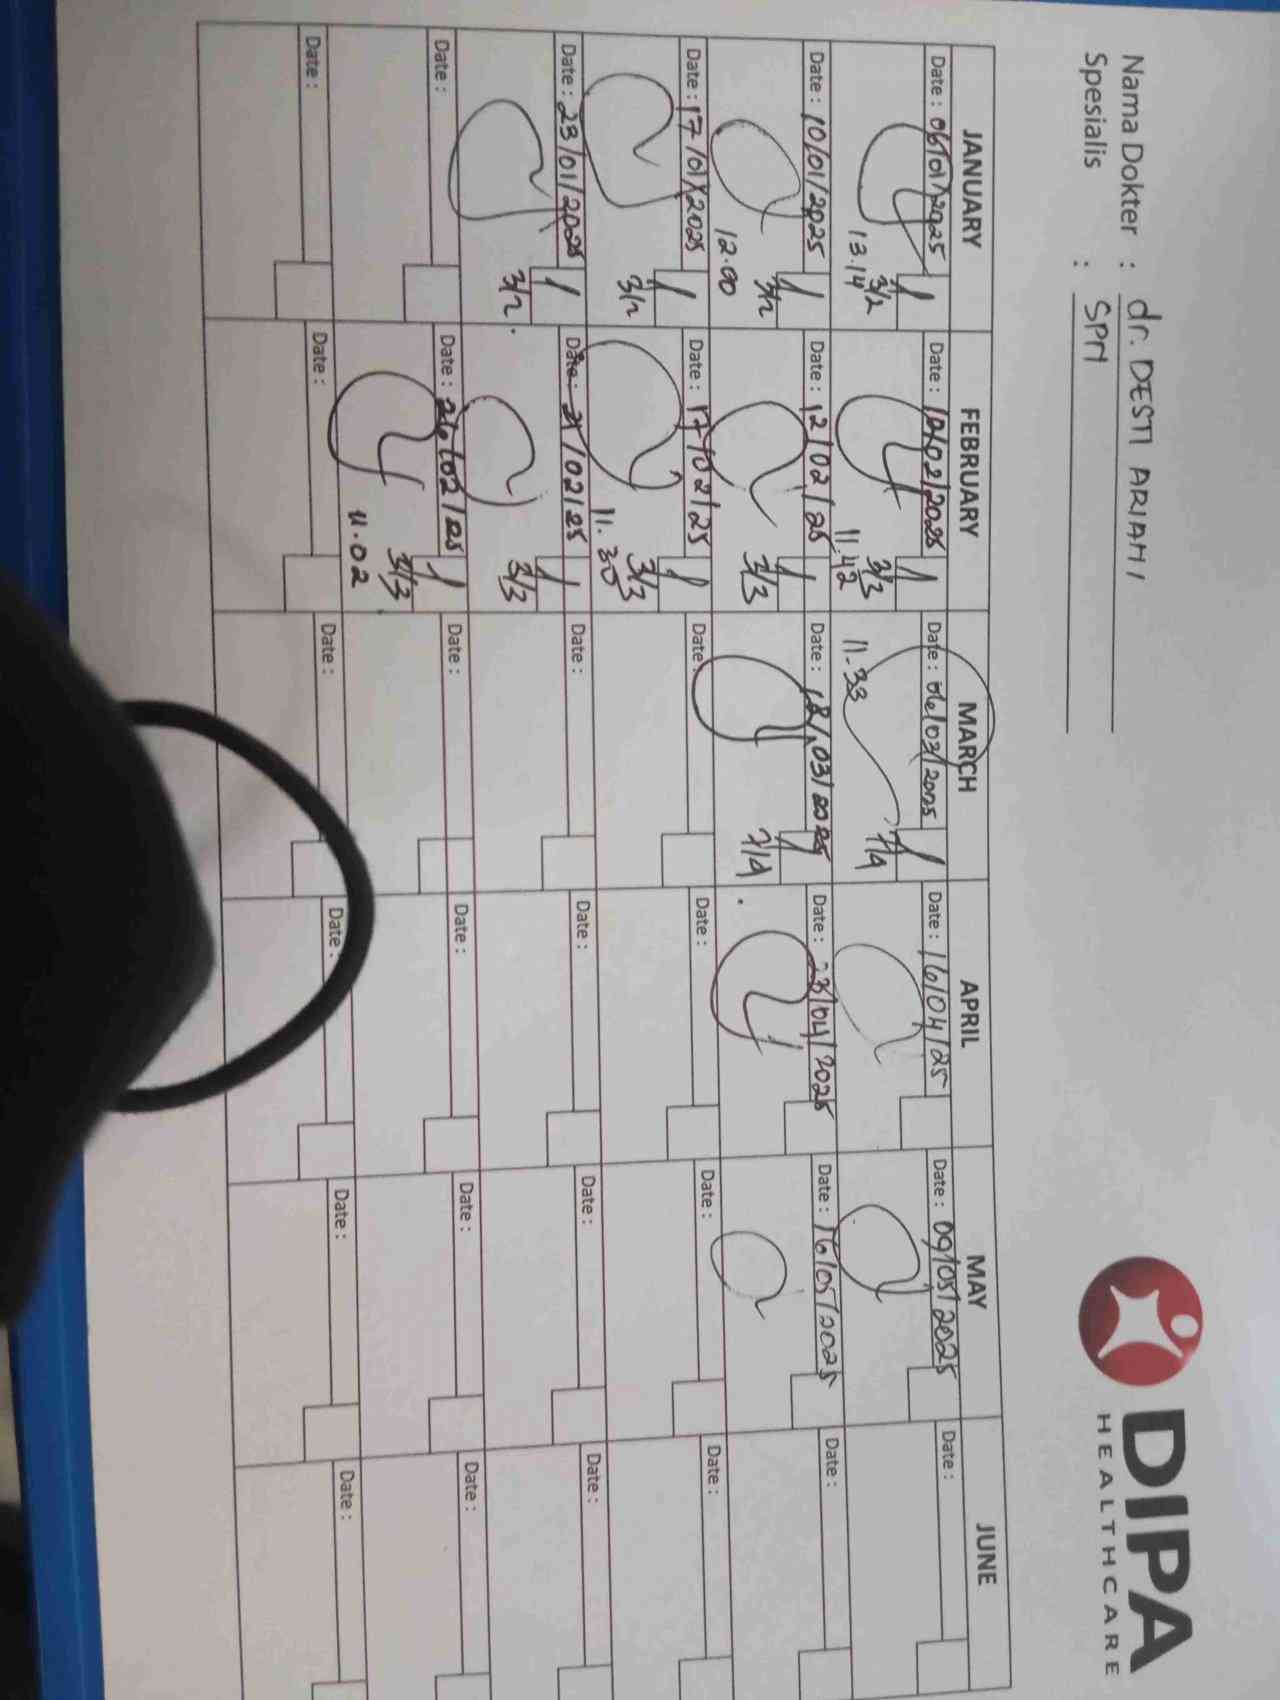 Nama Dokter : dr. DESTI ARIANI
Spesialis : SPM
DIPA
HEALTHCARE
JANUARY FEBRUARY MARCH APRIL MAY JUNE
Date : 06/01/2025 Date : 10/02/2025 Date : 06/03/2025 Date : 16/04/25 Date : 09/05/2025 Date :
13.14 3/2 11.42 3/3 11.33 7/4
Date : 10/01/2025 Date : 12/02/25 Date : 12/03/2025 Date : 23/04/2025 Date : 16/05/2025 Date :
12.00 3/2 3/3 7/4
Date : 17/01/2025 Date : 17/02/25 Date : Date : Date : Date :
3/2 11.30 3/3
Date : 23/01/2025 Date : 21/02/25 Date : Date : Date : Date :
3/2 3/3
Date : Date : 26/02/25 Date : Date : Date : Date :
11.02 3/3
Date : Date : Date : Date : Date : Date :